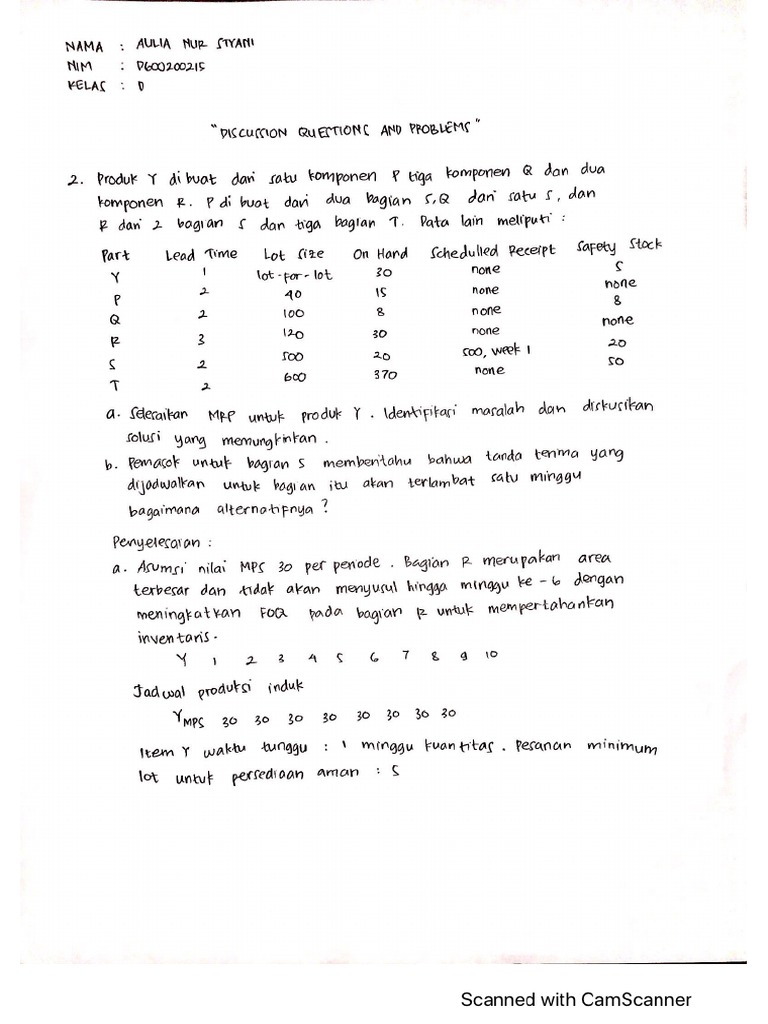 NAMA : AULIA NUR STYANI
NIM : D600200215
KELAS : D
"DISCUSSION QUESTIONS AND PROBLEMS"
2. Produk Y dibuat dari satu komponen P tiga komponen Q dan dua
komponen R. P dibuat dari dua bagian S, Q dari satu S, dan
R dari 2 bagian S dan tiga bagian T. Data lain meliputi :
Part Lead Time Lot Size On Hand Schedulled Receipt Safety Stock
Y 1 lot-for-lot 30 none 5
P 2 40 15 none none
Q 2 100 8 none 8
R 3 120 30 none none
S 2 500 20 500, week 1 20
T 2 600 370 none 50
a. Selesaikan MRP untuk produk Y. Identifikasi masalah dan diskusikan
solusi yang memungkinkan.
b. Pemasok untuk bagian S memberitahu bahwa tanda terima yang
dijadwalkan untuk bagian itu akan terlambat satu minggu
bagaimana alternatifnya ?
Penyelesaian :
a. Asumsi nilai MPS 30 per periode. Bagian R merupakan area
terbesar dan tidak akan menyusul hingga minggu ke-6 dengan
meningkatkan FOQ pada bagian R untuk mempertahankan
inventaris.
Y 1 2 3 4 5 6 7 8 9 10
Jadwal produksi induk
YMPS 30 30 30 30 30 30 30 30
Item Y waktu tunggu : 1 minggu kuantitas. Pesanan minimum
lot untuk persediaan aman : 5
Scanned with CamScanner